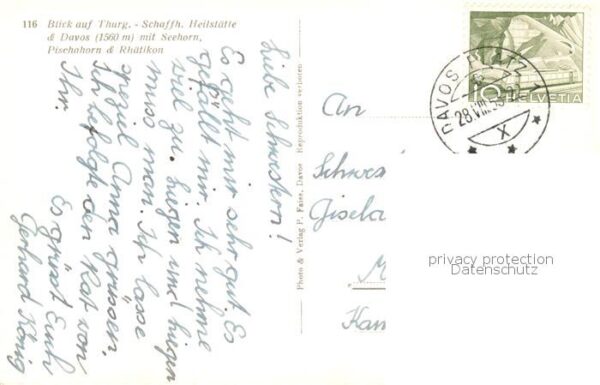 116 Blick auf Thurg. - Schaffh. Heilstätte
& Davos (1560 m) mit Seehorn,
Pischahorn & Rhätikon
Liebe Schwestern!
Es geht mir sehr gut. Es
gefällt mir. Ich nehme
viel zu. Liegen und liegen
muss man. Ich lasse
Anna grüssen.
Ich befolgte den Rat von
Ihr.
Es grüsst Euch
Gerhard König
Photo & Verlag P. Faiss, Davos Reproduktion verboten
An
Schwes
Gisela
M
Kan
DAVOS PLATZ 1
28.VIII.
X
10 HELVETIA
privacy protection
Datenschutz